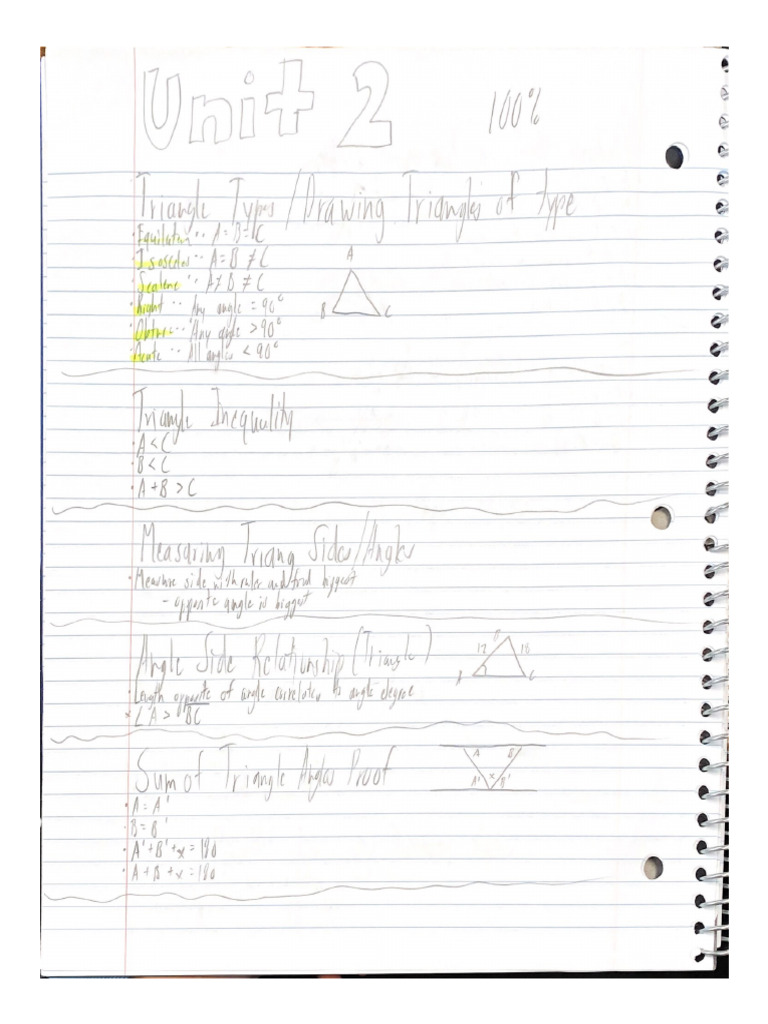 Unit 2
100%
Triangle Types/Drawing Triangles of type
· Equilateral ·· A = B = C
· Isosceles ·· A = B ≠ C
A
· Scalene ·· A ≠ B ≠ C
· Right ·· Any angle = 90°
B C
· Obtuse ·· Any angle > 90°
· Acute ·· All angles < 90°
Triangle Inequality
· A < C
· B < C
· A + B > C
Measuring Triang Sides/Angles
· Measure side with ruler and find biggest
- opposite angle is biggest
Angle Side Relationship (Triangle)
12 18
C
· Length opposite of angle correlates to angle degree
∠A > BC
Sum of Triangle Angles Proof
A B
A' x B'
· A = A'
· B = B'
· A' + B' + x = 180
· A + B + x = 180